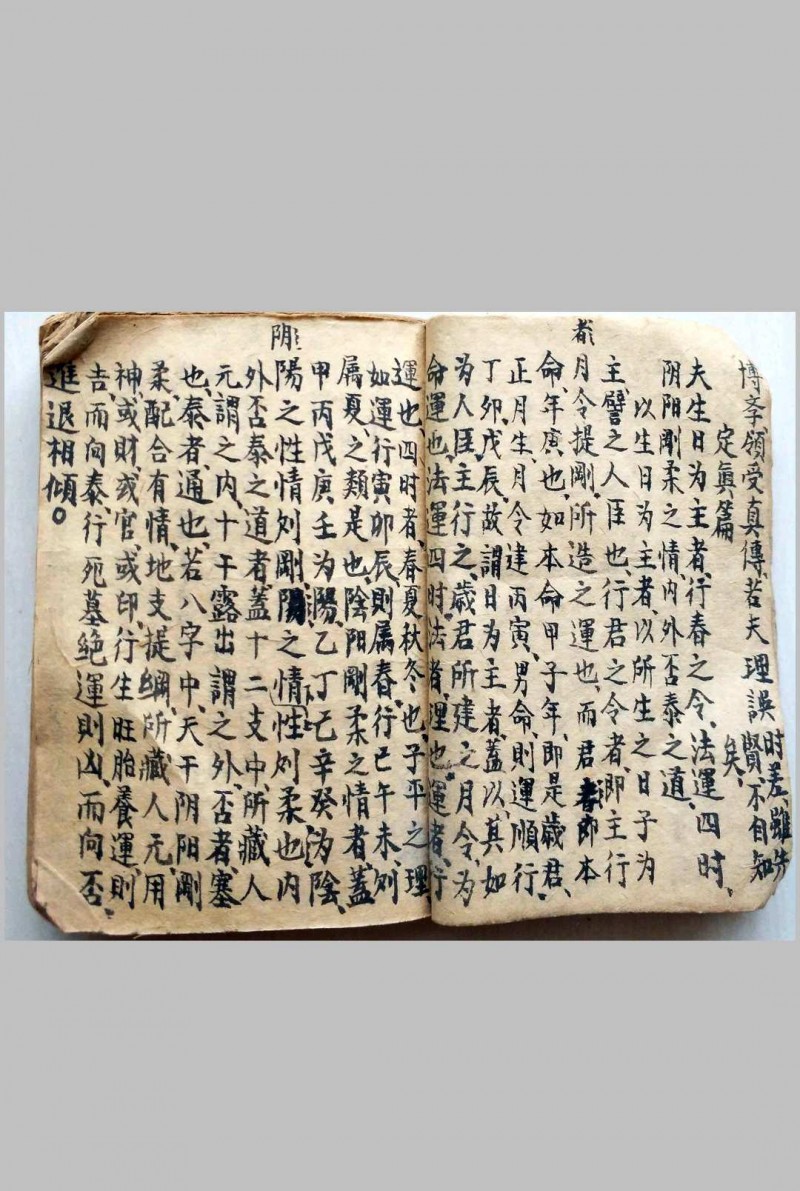 博李領受真傳、若夫理誤时差、雖先賢不自知矣、
定真篇
夫生日为主者、行春之令、法運四时、
阴阳剛柔之情、内外否泰之道、
以生日为主者、以所生之日子为
主、譬之人臣也、行君之令者、即主行
者月令提剛、所造之運也、而君者即本
命、年寅也、如本命甲子年、即是歲君、
正月生、月令建丙寅、男命、則運順行、
丁卯、戊辰、故謂日为主者、蓋以其如
为人臣、主行之、歲君所建之月令、为
命運也、法運四时、法者、理也、運者、行
運也、四时者、春夏秋冬也、子平之理
如運行寅卯辰、則属春、行巳午未、则
属夏之類是也、陰阳剛柔之情者、蓋
甲丙戊庚壬为陽、乙丁己辛癸为陰、
阴陽之性情刘剛、陽之情性刘柔也、内
外否泰之道者、蓋十二支中、所藏人
元、謂之内、十干露出、謂之外、否者、塞
也、泰者、通也、若八字中、天干阴阳剛
柔、配合有情、地支提綱、所藏人元、用
神、或財、或官、或印、行生旺胎養運、則
吉、而向泰、行死墓絶運則凶、而向否、
進退相傾。